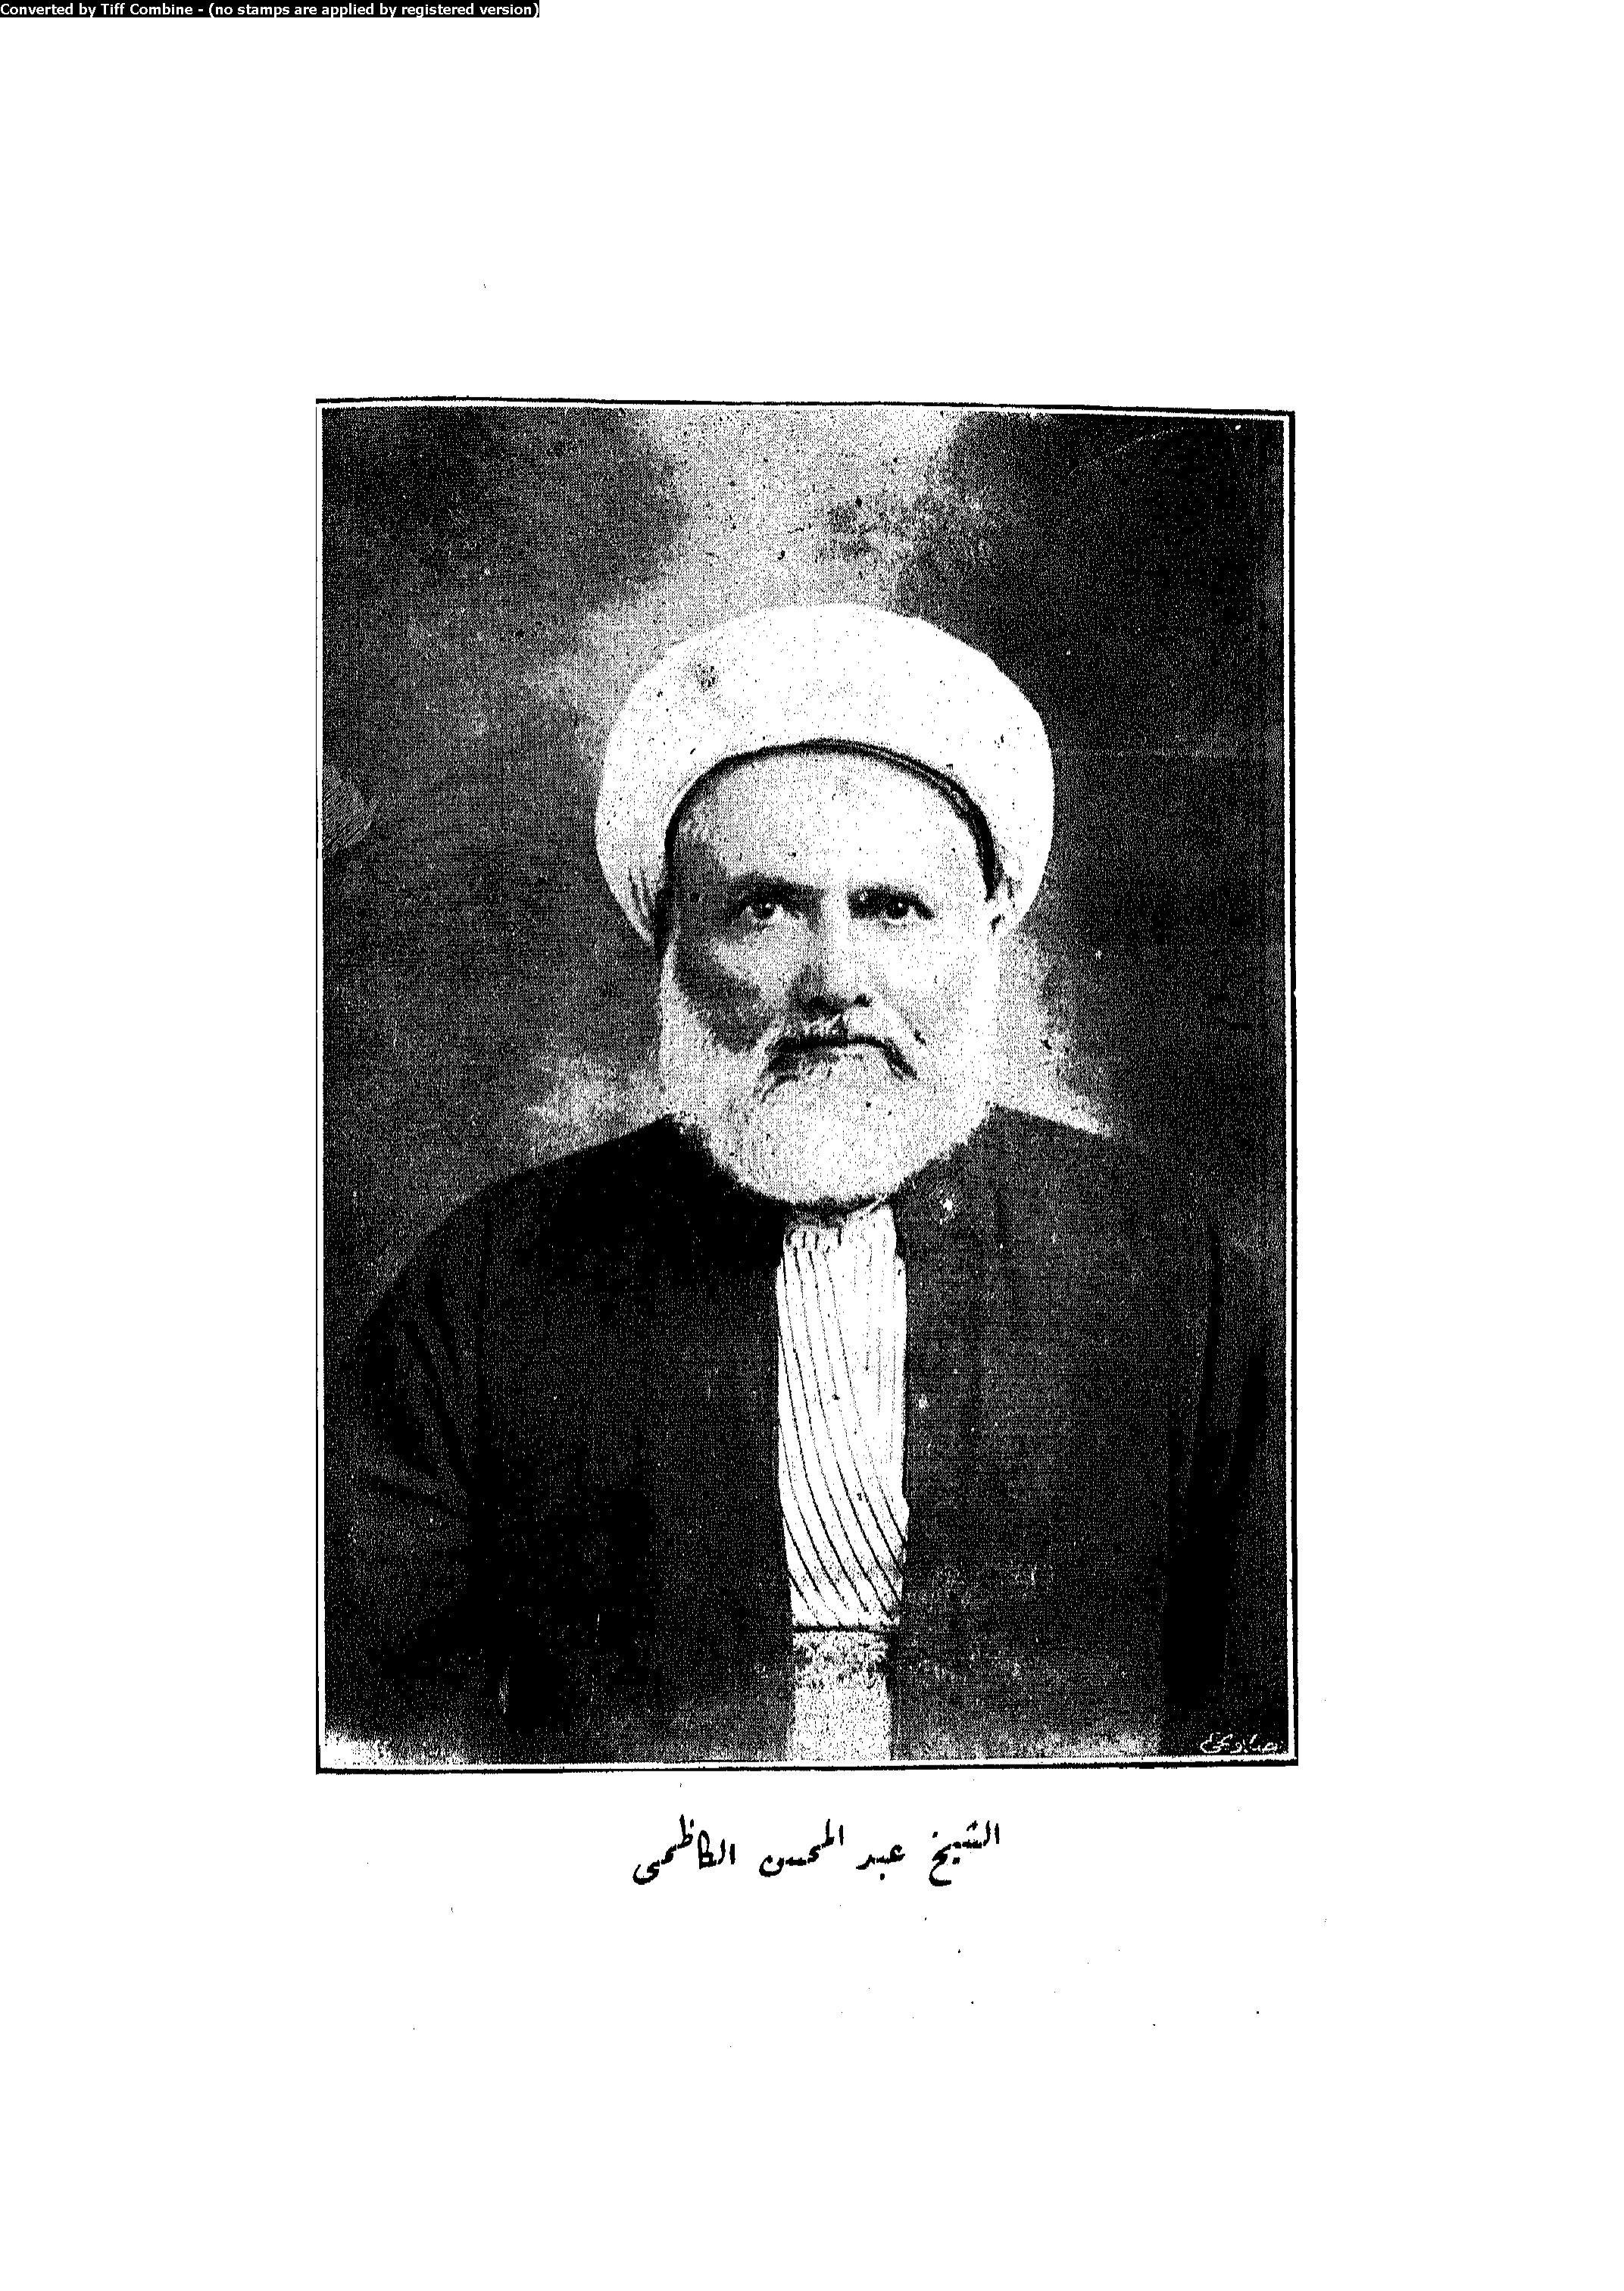 Converted by Tiff Combine - (no stamps are applied by registered version)
الشيخ عبد المحسن الكاظمى